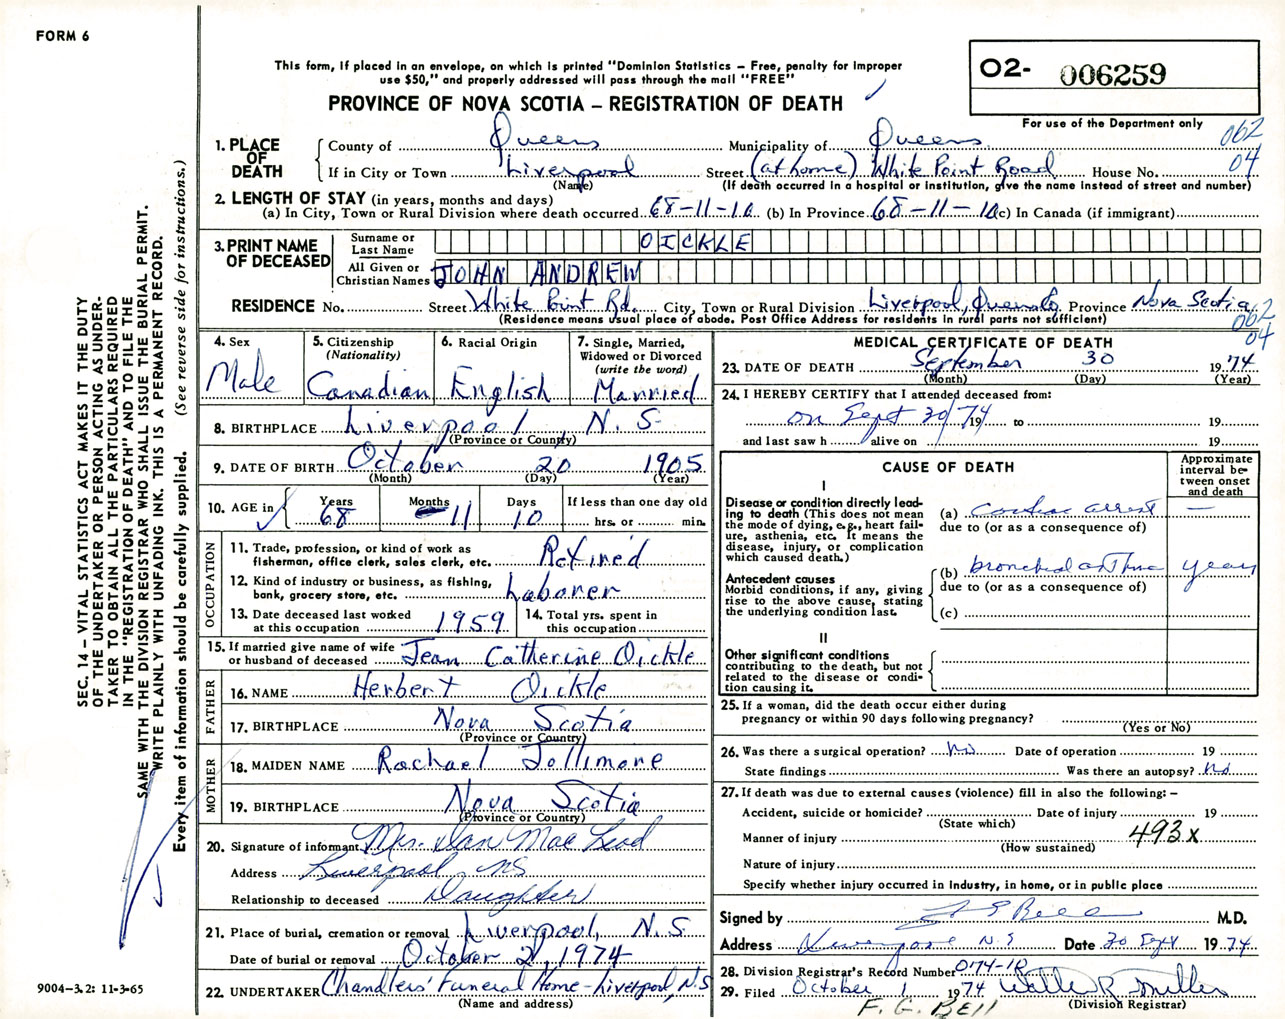 FORM 6
This form, if placed in an envelope, on which is printed "Dominion Statistics – Free, penalty for improper
use $50," and properly addressed will pass through the mail "FREE"
O2- 006259
PROVINCE OF NOVA SCOTIA – REGISTRATION OF DEATH
For use of the Department only
062
04
1. PLACE OF DEATH
County of Queens Municipality of Queens
If in City or Town Liverpool Street (at home) White Point Road House No.
(Name) (If death occurred in a hospital or institution, give the name instead of street and number)
2. LENGTH OF STAY (in years, months and days)
(a) In City, Town or Rural Division where death occurred 68-11-10 (b) In Province 68-11-10 (c) In Canada (if immigrant)
3. PRINT NAME OF DECEASED
Surname or Last Name OICKLE
All Given or Christian Names JOHN ANDREW
RESIDENCE No. Street White Point Rd. City, Town or Rural Division Liverpool, Queens Co Province Nova Scotia
(Residence means usual place of abode. Post Office Address for residents in rural parts not sufficient)
062
04
4. Sex
Male
5. Citizenship
(Nationality)
Canadian
6. Racial Origin
English
7. Single, Married,
Widowed or Divorced
(write the word)
Married
8. BIRTHPLACE Liverpool, N.S.
(Province or Country)
9. DATE OF BIRTH October 20 1905
(Month) (Day) (Year)
10. AGE in Years 68 Months 11 Days 10
If less than one day old
hrs. or min.
OCCUPATION
11. Trade, profession, or kind of work as
fisherman, office clerk, sales clerk, etc. Retired
12. Kind of industry or business, as fishing,
bank, grocery store, etc. Laborer
13. Date deceased last worked
at this occupation 1959
14. Total yrs. spent in
this occupation
15. If married give name of wife
or husband of deceased Jean Catherine Oickle
FATHER
16. NAME Herbert Oickle
17. BIRTHPLACE Nova Scotia
(Province or Country)
MOTHER
18. MAIDEN NAME Rachael Jollimore
19. BIRTHPLACE Nova Scotia
(Province or Country)
20. Signature of informant Mrs. Dan MacLeod
Address Liverpool NS
Relationship to deceased Daughter
21. Place of burial, cremation or removal Liverpool, N.S
Date of burial or removal October 2, 1974
22. UNDERTAKER Chandlers' Funeral Home - Liverpool, N.S
(Name and address)
MEDICAL CERTIFICATE OF DEATH
23. DATE OF DEATH September 30 1974
(Month) (Day) (Year)
24. I HEREBY CERTIFY that I attended deceased from:
on Sept 30/74 19 to 19
and last saw h alive on 19
CAUSE OF DEATH
Approximate
interval be-
tween onset
and death
I
Disease or condition directly lead-
ing to death (This does not mean
the mode of dying, e.g., heart fail-
ure, asthenia, etc. It means the
disease, injury, or complication
which caused death.)
(a) cardiac arrest —
due to (or as a consequence of)
Antecedent causes
Morbid conditions, if any, giving
rise to the above cause, stating
the underlying condition last.
(b) bronchial asthma years
due to (or as a consequence of)
(c)
II
Other significant conditions
contributing to the death, but not
related to the disease or condi-
tion causing it.
25. If a woman, did the death occur either during
pregnancy or within 90 days following pregnancy?
(Yes or No)
26. Was there a surgical operation? No Date of operation 19
State findings Was there an autopsy? No
27. If death was due to external causes (violence) fill in also the following: –
Accident, suicide or homicide? Date of injury 19
(State which)
Manner of injury 493x
(How sustained)
Nature of injury
Specify whether injury occurred in industry, in home, or in public place
Signed by F G Bell M.D.
Address Liverpool N.S Date 30 Sept 1974
28. Division Registrar's Record Number 0174-1R
29. Filed October 1 1974
(Division Registrar)
F. G. BELL
SEC. 14 – VITAL STATISTICS ACT MAKES IT THE DUTY
OF THE UNDERTAKER OR PERSON ACTING AS UNDER-
TAKER TO OBTAIN ALL THE PARTICULARS REQUIRED
IN THE "REGISTRATION OF DEATH" AND TO FILE THE
SAME WITH THE DIVISION REGISTRAR WHO SHALL ISSUE THE BURIAL PERMIT.
WRITE PLAINLY WITH UNFADING INK. THIS IS A PERMANENT RECORD.
Every item of information should be carefully supplied. (See reverse side for instructions.)
9004-3.2: 11-3-65